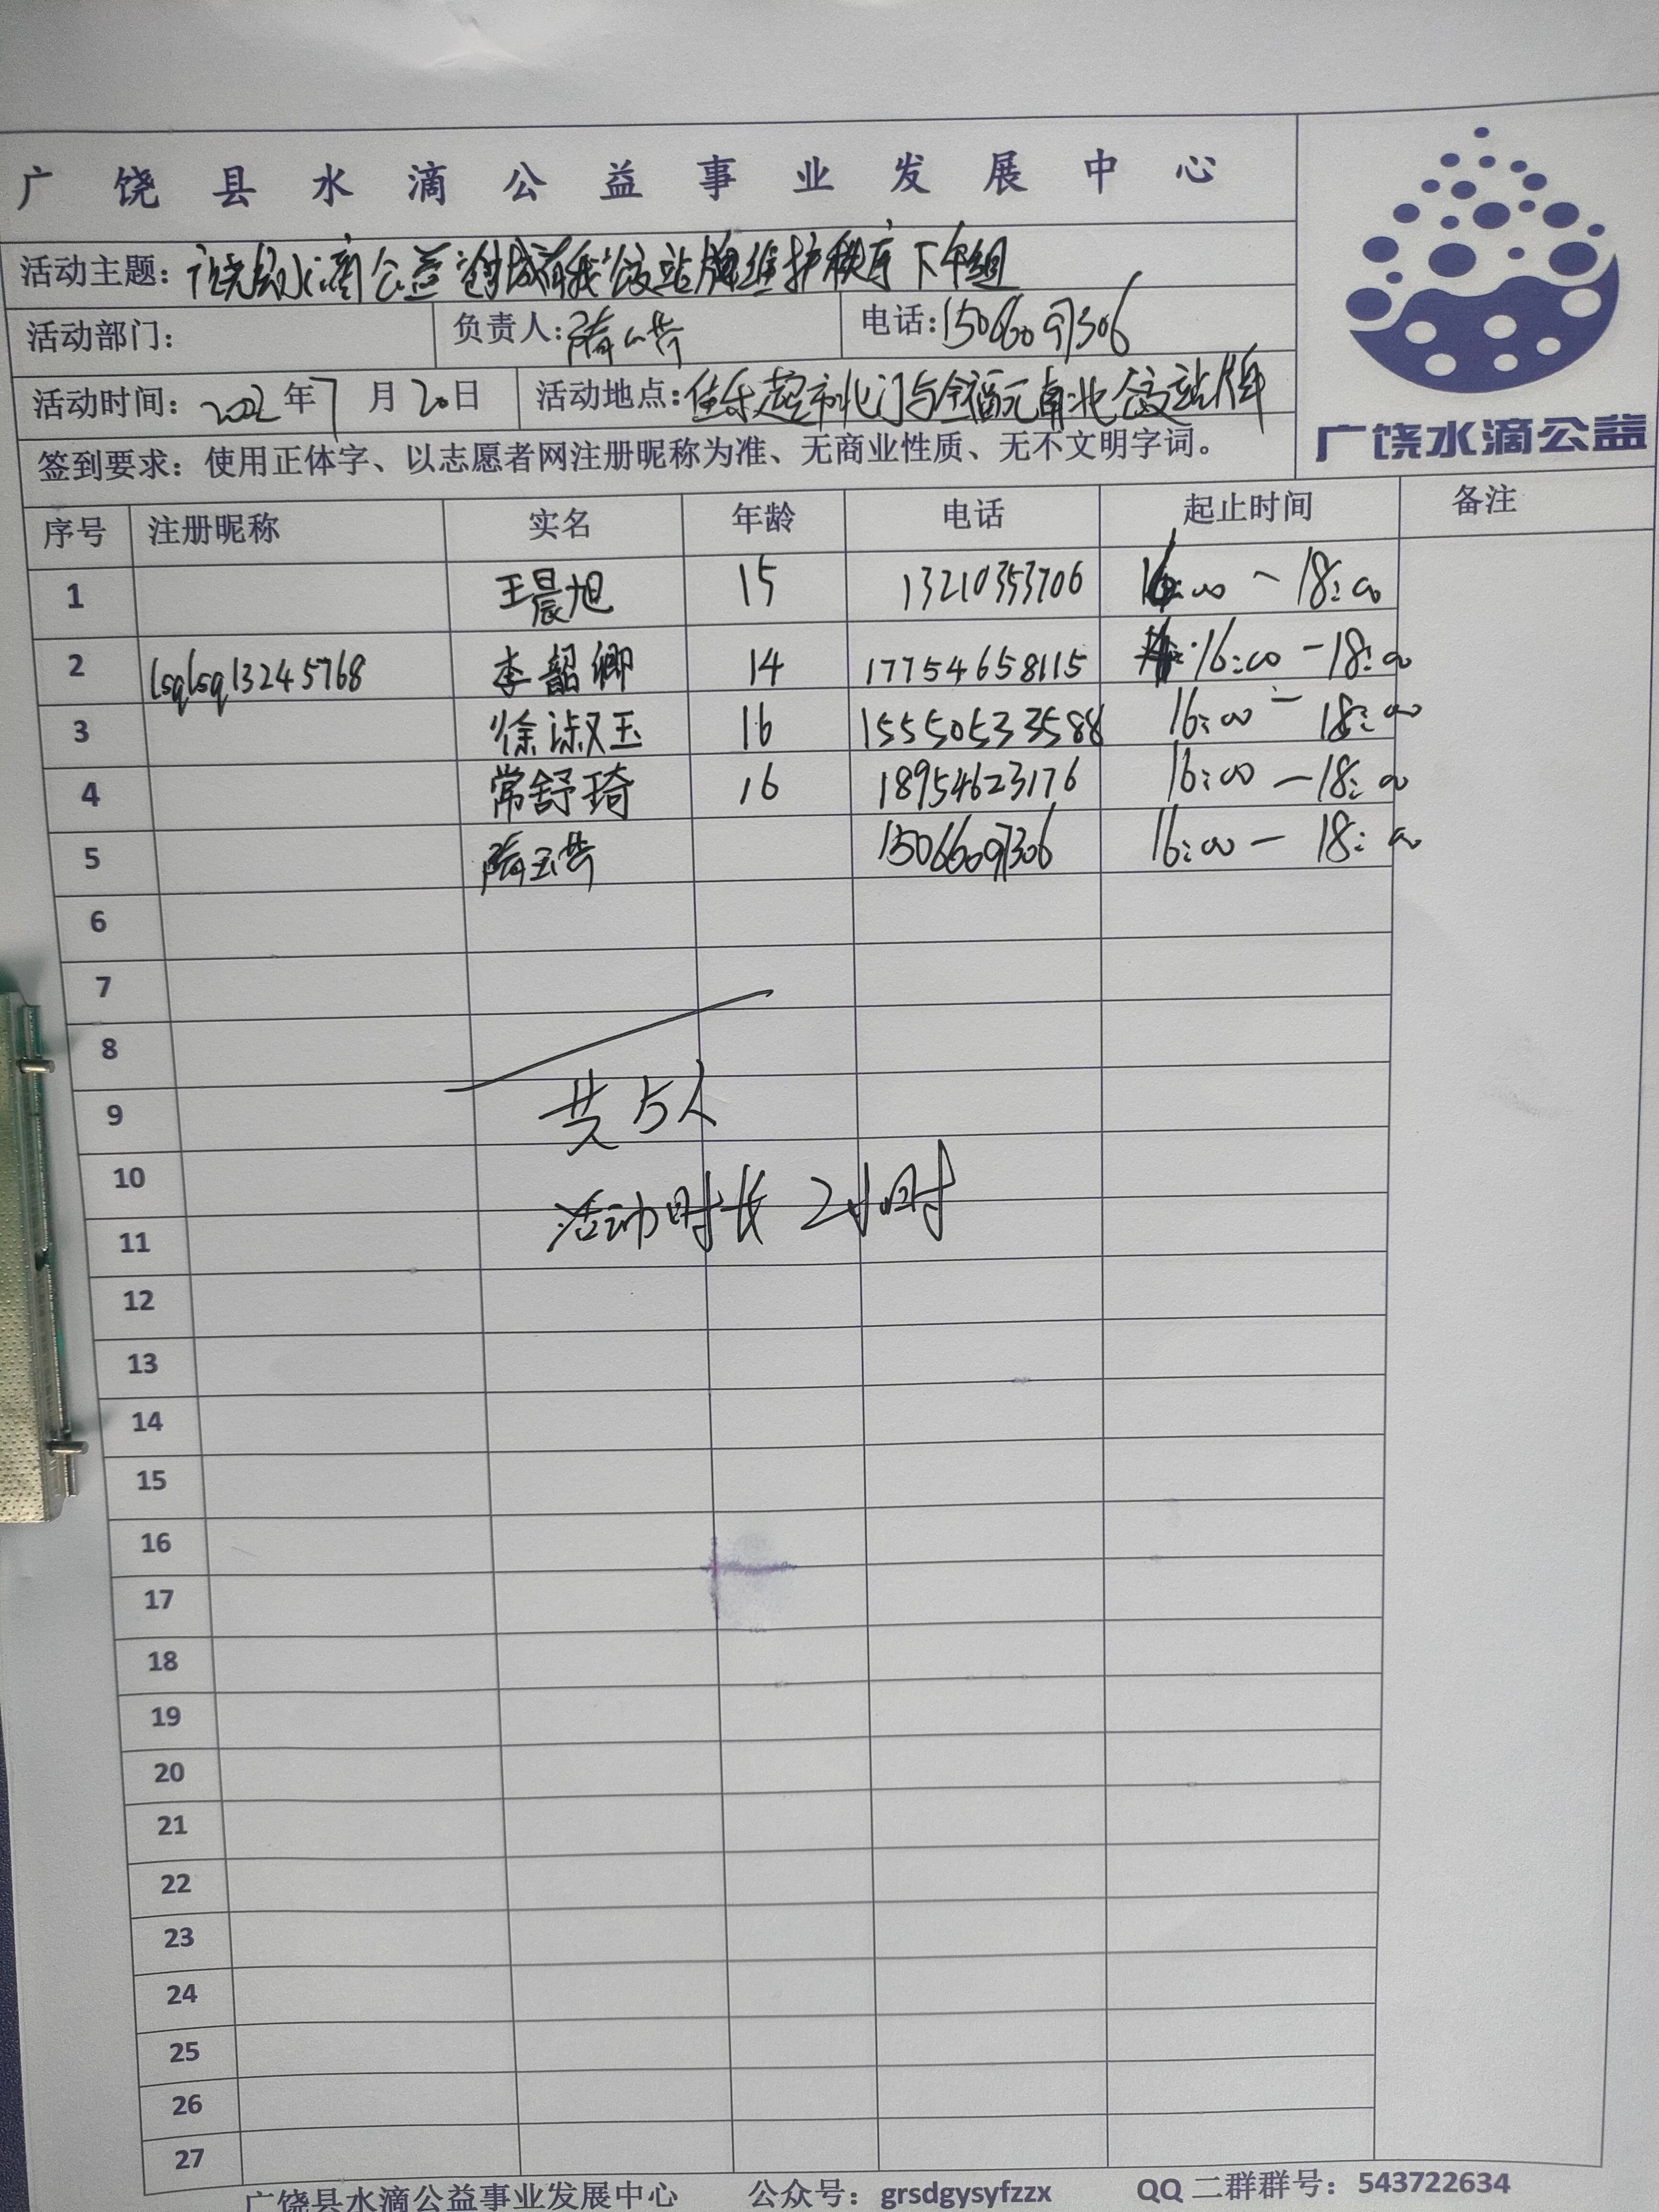 广饶县水滴公益事业发展中心
活动主题：广饶县水滴公益"创城有我"公交站牌维护秩序 下午组
活动部门： 负责人： 电话：15066097306
活动时间：2022年7月20日 活动地点：佳乐超市北门与全福元南北公交站牌
签到要求：使用正体字、以志愿者网注册昵称为准、无商业性质、无不文明字词。
广饶水滴公益
序号 注册昵称 实名 年龄 电话 起止时间 备注
1 王晨旭 15 13210353706 16:00 ~ 18:00
2 lsqlsq13245768 李韶卿 14 17754658115 16:00 - 18:00
3 徐淑玉 16 15550533588 16:00 - 18:00
4 常舒琦 16 18954623176 16:00 - 18:00
5 15066097306 16:00 - 18:00
6
7
8
9 共5人
10
11 活动时长 2小时
12
13
14
15
16
17
18
19
20
21
22
23
24
25
26
27
广饶县水滴公益事业发展中心 公众号：grsdgysyfzzx QQ 二群群号：543722634